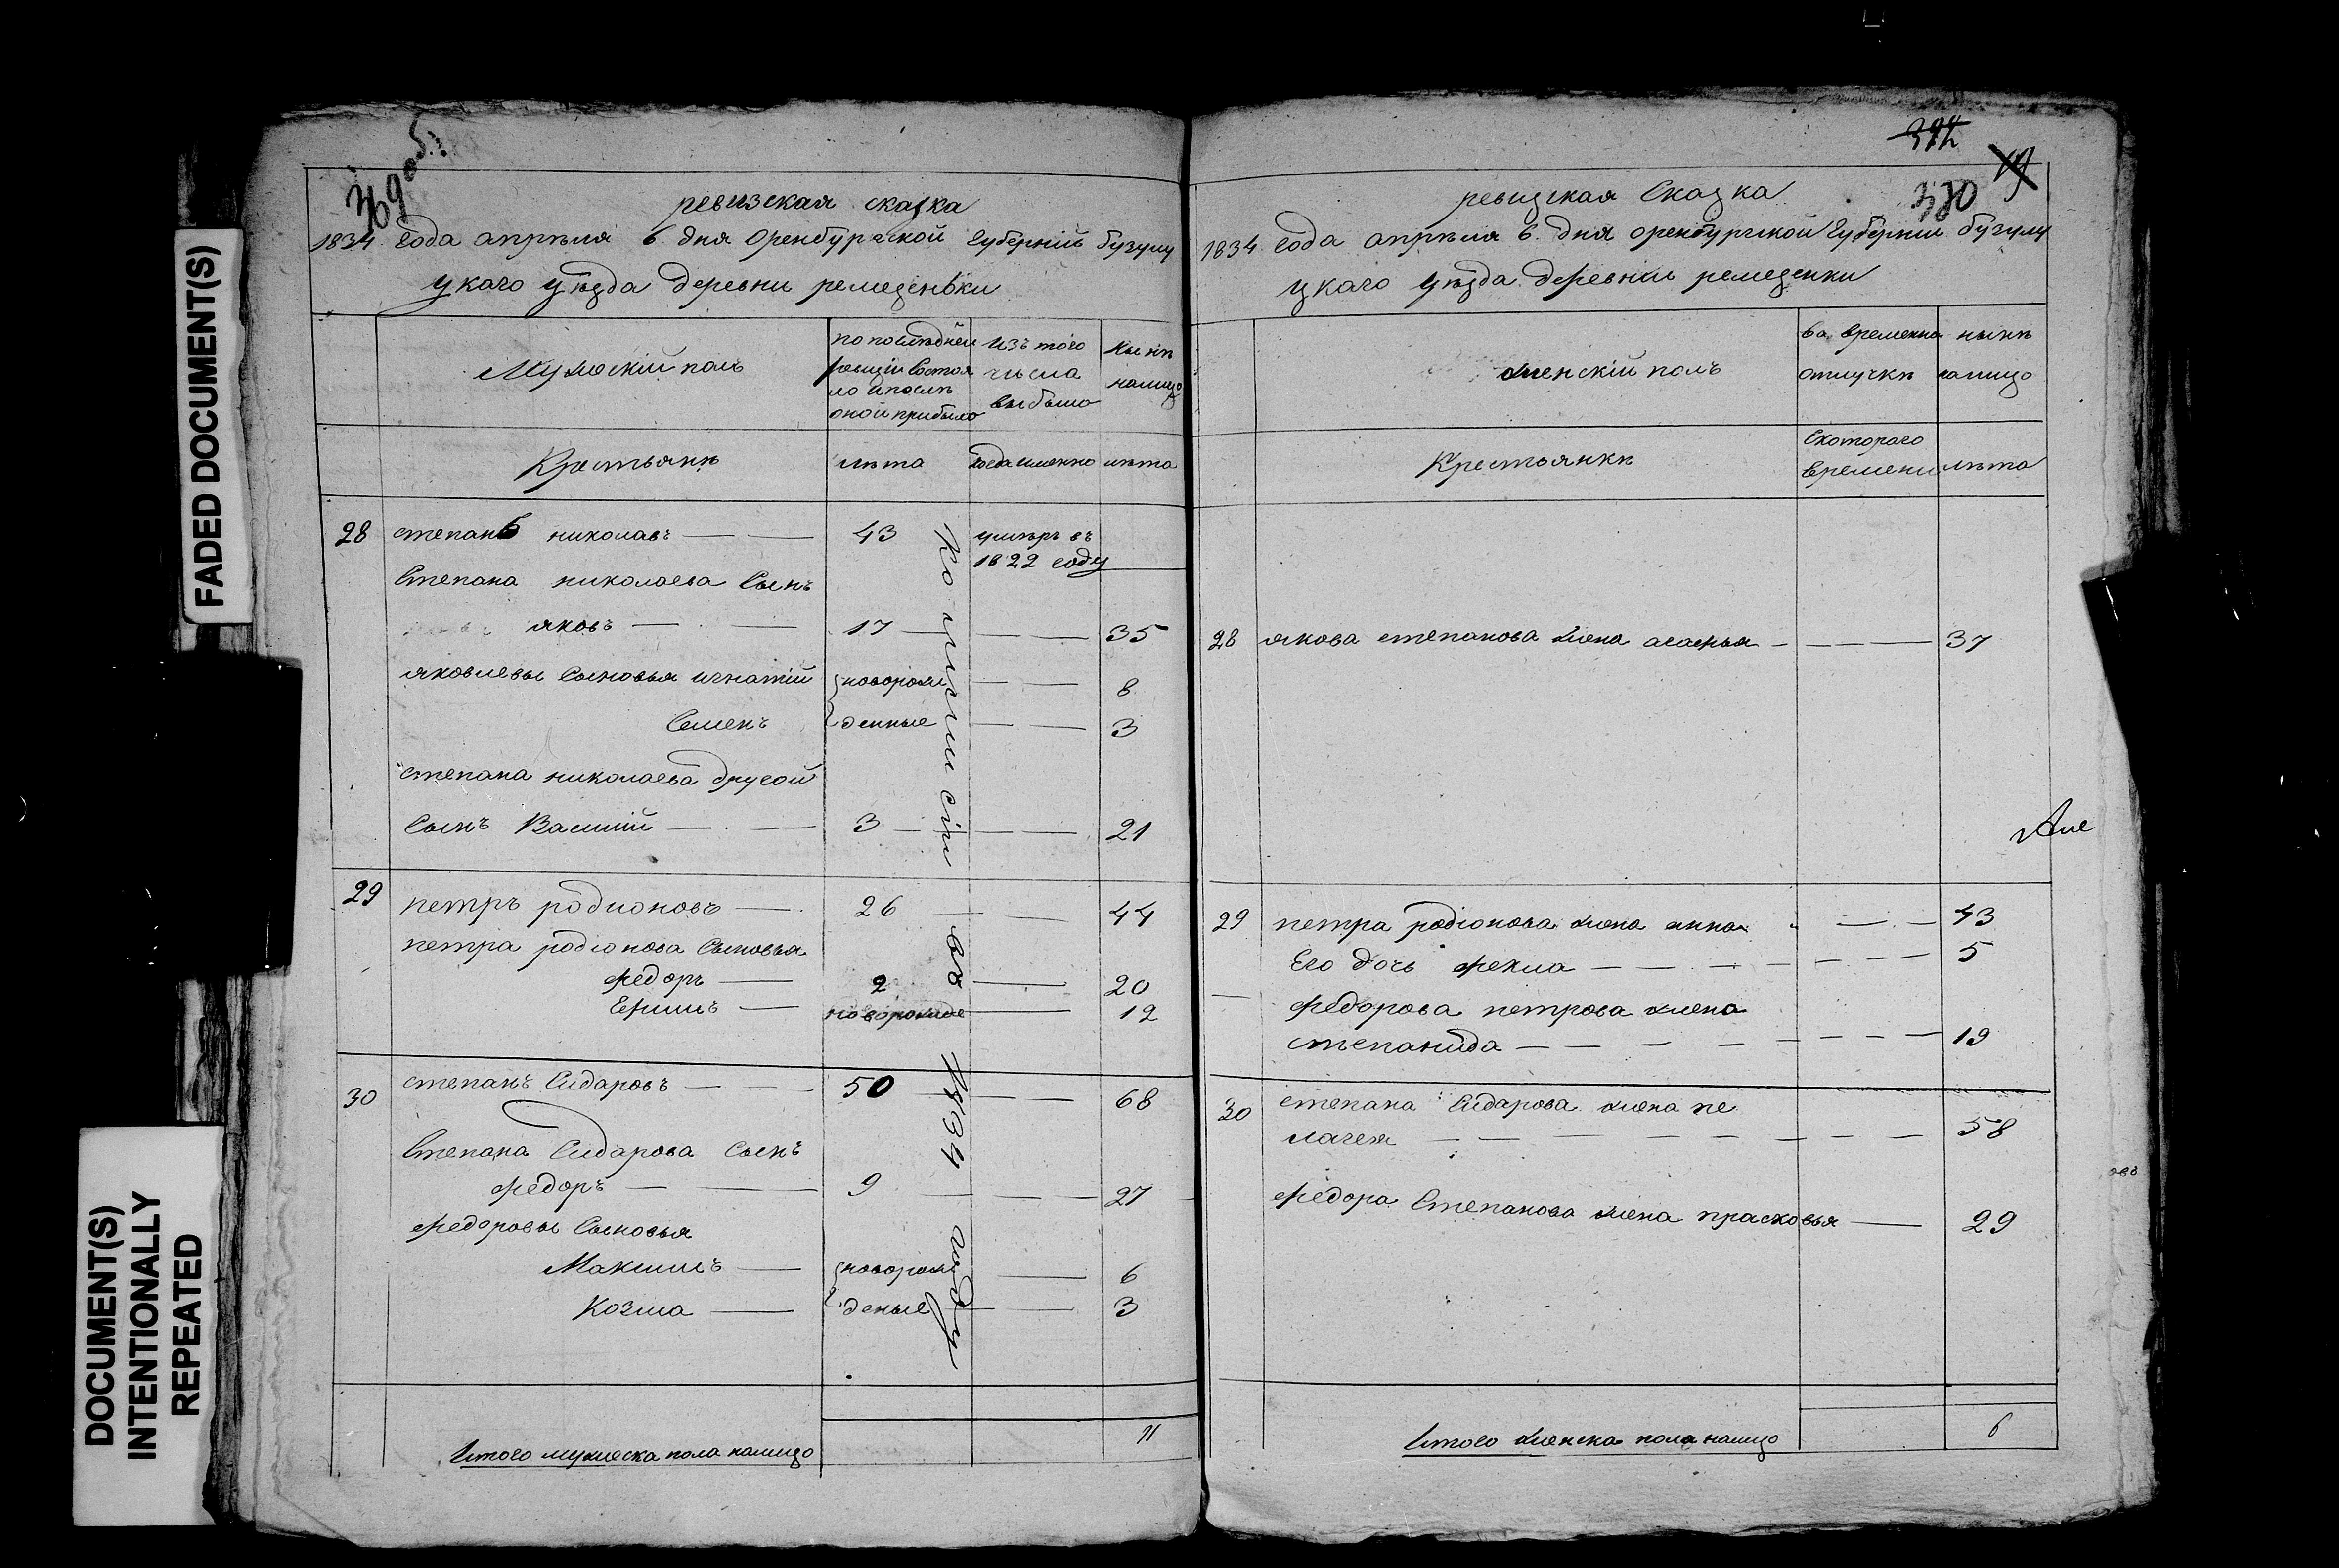 FADED DOCUMENT(S)
DOCUMENT(S)
INTENTIONALLY
REPEATED
ревизская скаска
1834 года апреля 6 дня Оренбургской губерніи бузулу
цкаго уезда деревни ремезенки
Мужескій полъ
по последней ревизіи состояло и после оной прибыло
изъ того числа выбыло
ныне налицо
Крестьяне
лета
когда именно
лета
28 степанъ николавъ — — 43 умеръ въ 1822 году
Степана николаева Сынъ
яковъ — — 17 — — 35
яковлевы Сыновья игнатій новорож — — 8
Семенъ денные — — 3
степана николаева другой
Сынъ Василій — — 3 — — 21
29 петръ родионовъ — 26 — — 44
петра родионова Сыновья
Федоръ — 2 — 20
Ефимъ — новорожде — 12
30 степанъ Сидаровъ — — 50 — — 68
Степана Сидарова Сынъ
Федоръ — — 9 — — 27
Федоровы Сыновья
Максимъ — новорож — 6
Козма — деные — 3
въ 1834 году
Итого мужеска пола налицо 11
394
380
19
ревизская Сказка
1834 года апреля 6. дня оренбургской Губерніи бузулу
цкаго уезда деревни ремезенки
женскій полъ
во временно отлучке
ныне налицо
Крестьянке
Скотораго времени
лета
28 якова степанова жена агафья — — — 37
29 петра родіонова жена анна — — 43
Его дочь Фекла — — — 5
Федорова петрова жена
степанида — — — 19
30 степана Сидарова жена пе
лагея — — — 58
Федора Степанова жена прасковья — 29
Итого женска пола налицо 6